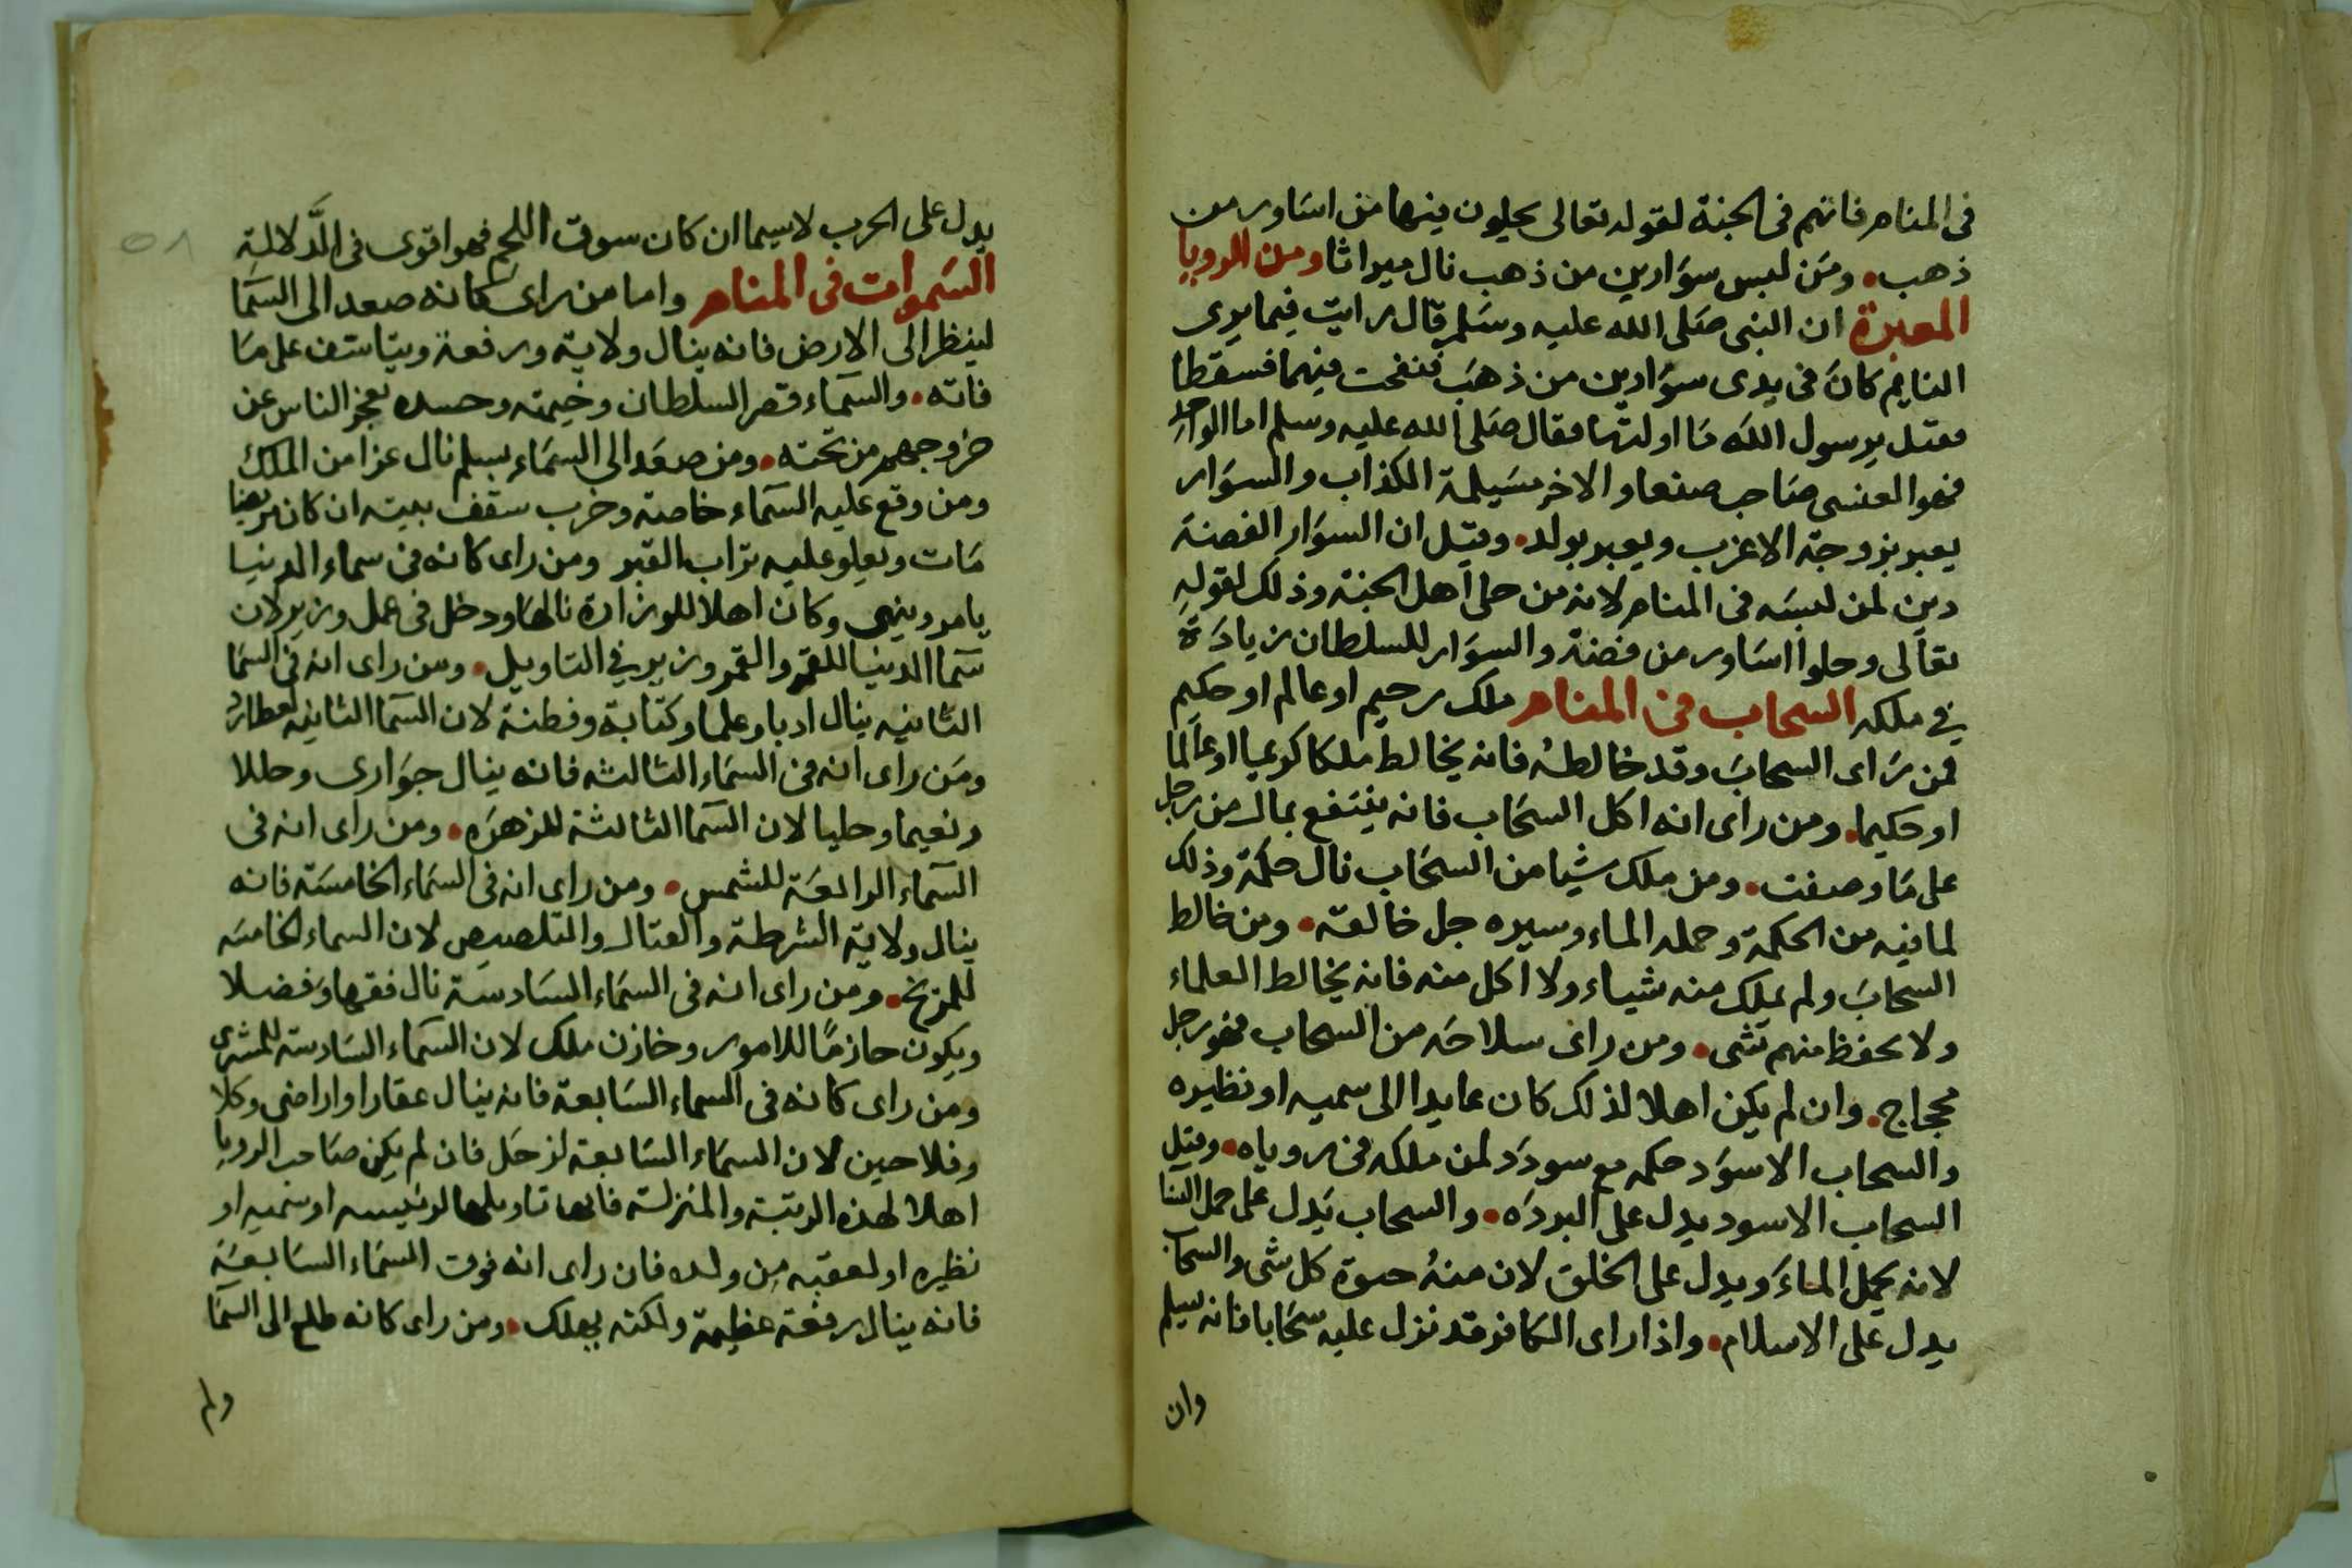 فى المنام فانهم فى الجنة لقوله تعالى يحلون فيها من اساور من
ذهب. ومن لبس سوارين من ذهب نال ميراثا ومن الرويا
المعبرة ان النبى صلى الله عليه وسلم قال رايت فيما يرى
النايم كان فى يدى سوارين من ذهب فنفخت فيهما فسقطا
فقيل يرسول الله ما اولتها فقال صلى الله عليه وسلم اما الواحد
فهو العنسى صاحب صنعا والاخر مسيلمة الكذاب والسوار
يعبر بزوجة الاعزب ويعبر بولد. وقيل ان السوار الفضة
دين لمن لبسه فى المنام لانه من حلى اهل الجنة وذلك لقوله
تعالى وحلوا اساور من فضة والسوار للسلطان زيادة
في ملكه السحاب فى المنام ملك رحيم او عالم او حكيم
فمن راى السحاب وقد خالطه فانه يخالط ملكا كريما او عالما
او حكيما. ومن راى انه اكل السحاب فانه ينتفع بمال من رجل
على ما وصفت. ومن ملك شيا من السحاب نال حكمة وذلك
لما فيه من الحكمة وحمله الماء وسيره جل خالقه. ومن خالط
السحاب ولم يملك منه شياء ولا اكل منه فانه يخالط العلماء
ولا يحفظ منهم شى. ومن راى سلاحه من السحاب فهو رجل
محجاج. وان لم يكن اهلا لذلك كان عايدا الى سميه او نظيره
والسحاب الاسود حكمه مع سودد لمن ملكه فى روياه. وقيل
السحاب الاسود يدل على البرده. والسحاب يدل على حمل النسا
لانه يحمل الماء ويدل على الخلق لان منه حيوة كل شى والسحاب
يدل على الاسلام. واذا راى الكافر قد نزل عليه سحابا فانه يسلم
وان
يدل على الحرب لاسيما ان كان سوق اللحم فهو اقوى فى الدلالة
السموات فى المنام واما من راى كانه صعد الى السما
لينظر الى الارض فانه ينال ولاية ورفعة ويتاسف على ما
فاته. والسماء قصر السلطان وخيمته وحسده لعجز الناس عن
خروجهم من تحته. ومن صعد الى السماء بسلم نال عزا من الملك
ومن وقع عليه السماء خاصة وخرب سقف بيته ان كان مريضا
مات ويعلو عليه تراب القبر ومن راى كانه فى سماء الدنيا
يامر وينهى وكان اهلا للوزارة نالها ودخل فى عمل وزير لان
سما الدنيا للقمر والقمر وزير في التاويل. ومن راى انه فى السما
الثانيه ينال ادبا وعلما وكتابة وفطنة لان السما الثانيه لعطارد
ومن راى انه فى السماء الثالثه فانه ينال جوارى وحللا
ونعيما وحليا لان السما الثالثة للزهره. ومن راى انه فى
السماء الرابعة للشمس. ومن راى انه فى السماء الخامسة فانه
ينال ولاية الشرطة والقتال والتلصيص لان السماء الخامسه
للمريخ. ومن راى انه فى السماء السادسة نال فقها وفضلا
ويكون حازما للامور وخازن ملك لان السماء السادسة للمشترى
ومن راى كانه فى السماء السابعة فانه ينال عقارا واراضى وكلا
وفلاحين لان السماء السابعة لزحل فان لم يكن صاحب الرويا
اهلا لهذه الرتبة والمنزلة فانها تاويلها لرئيسه او سميه او
نظيره او لعقبه من ولده فان راى انه فوق السماء السابعة
فانه ينال رفعة عظيمة ولكنه يهلك. ومن راى كانه طلع الى السما
ولم